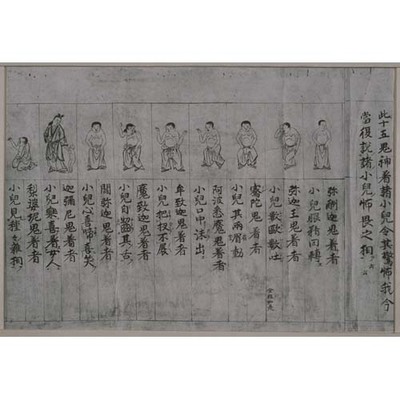 此十五鬼神着諸小兒令其驚怖我今
當復說諸小兒怖畏之相
弥酬迦鬼着者
小兒眼精回轉
弥迦王鬼着者
小兒數數歐吐
騫陀鬼着者
小兒其兩肩動
阿波悉魔鬼着者
小兒口中沫出
牟致迦鬼着者
小兒把拳不展
魔致迦鬼着者
小兒自齧其舌
閻弥迦鬼着者
小兒心喜啼喜笑
迦彌尼鬼着者
小兒樂喜着女人
梨婆坭鬼着者
小兒見種々雜相